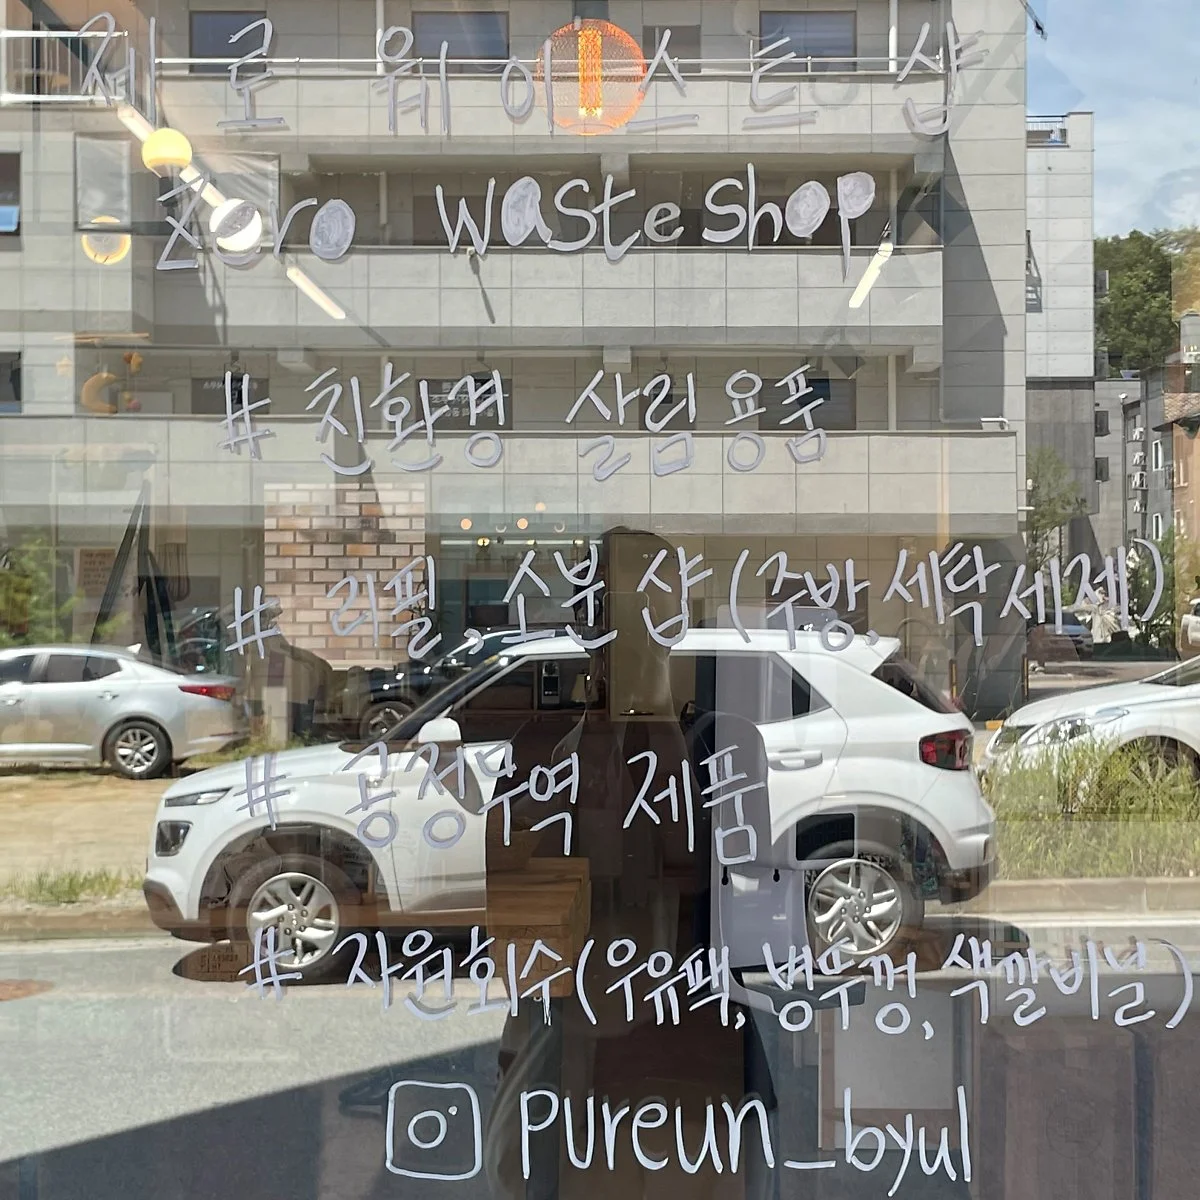 제로 웨이스트 샵
Zero waste shop
# 친환경 살림용품
# 리필, 소분 샵 (주방, 세탁세제)
# 공정무역 제품
# 자원회수 (우유팩, 병뚜껑, 색깔비닐)
pureun_byul